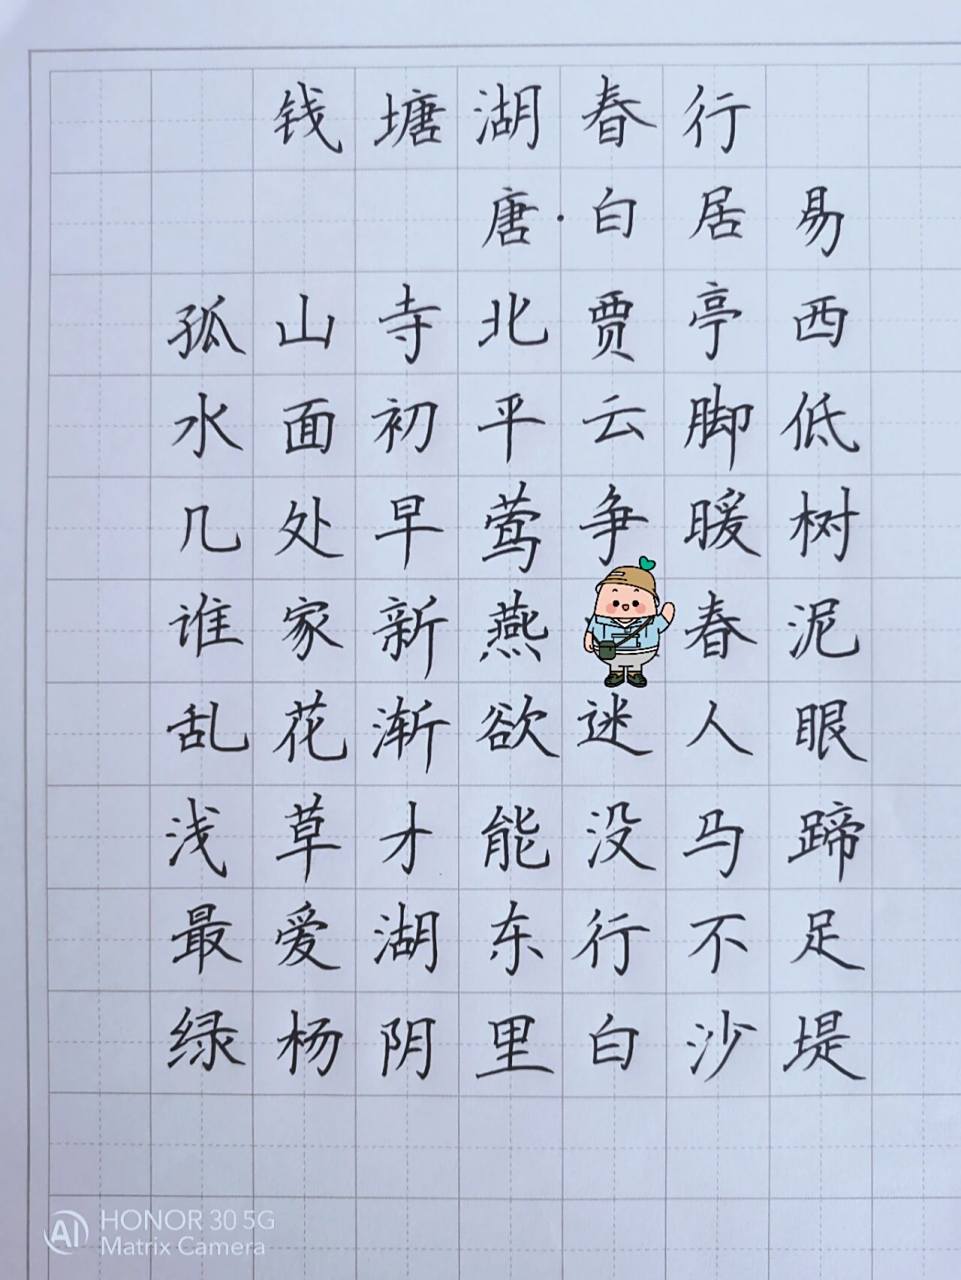 钱塘湖春行
唐·白居易
孤山寺北贾亭西
水面初平云脚低
几处早莺争暖树
谁家新燕春泥
乱花渐欲迷人眼
浅草才能没马蹄
最爱湖东行不足
绿杨阴里白沙堤
AI HONOR 30 5G
Matrix Camera